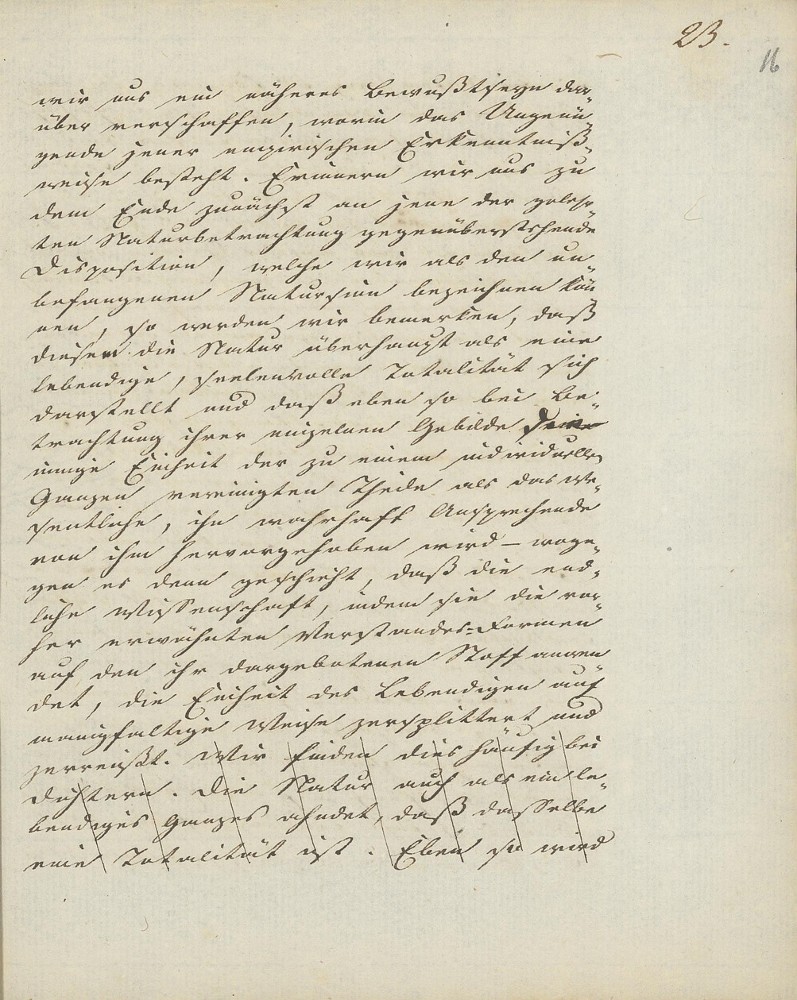 23.
16
wir uns ein näheres Bewußtseyn dar-
über verschaffen, worin das Ungenü-
gende jener empirischen Erkenntniß-
weise besteht. Erinnern wir uns zu
dem Ende zunächst an jene der gelehr-
ten Naturbetrachtung gegenüberstehende
Disposition, welche wir als den un-
befangenen Natursinn bezeichnen kön-
nen, so werden wir bemerken, daß
diesem die Natur überhaupt als eine
lebendige, seelenvolle Totalität sich
darstellt und daß eben so bei Be-
trachtung ihrer einzelnen Gebilde
innige Einheit der zu einem individuellen
Ganzen vereinigten Theile als das We-
sentliche, ihn wahrhaft Ansprechende
von ihm hervorgehoben wird – woge-
gen es denn geschieht, daß die end-
liche Wissenschaft, indem sie die vor-
her erwähnten Verstandes-Formen
auf den ihr dargebotenen Stoff anwen-
det, die Einheit des Lebendigen auf
manigfaltige Weise zersplittert und
zerreißt. Wir finden dies häufig bei
Dichtern. Die Natur auch als ein le-
bendiges Ganzes ahndet, daß dasselbe
eine Totalität ist. Eben so wird